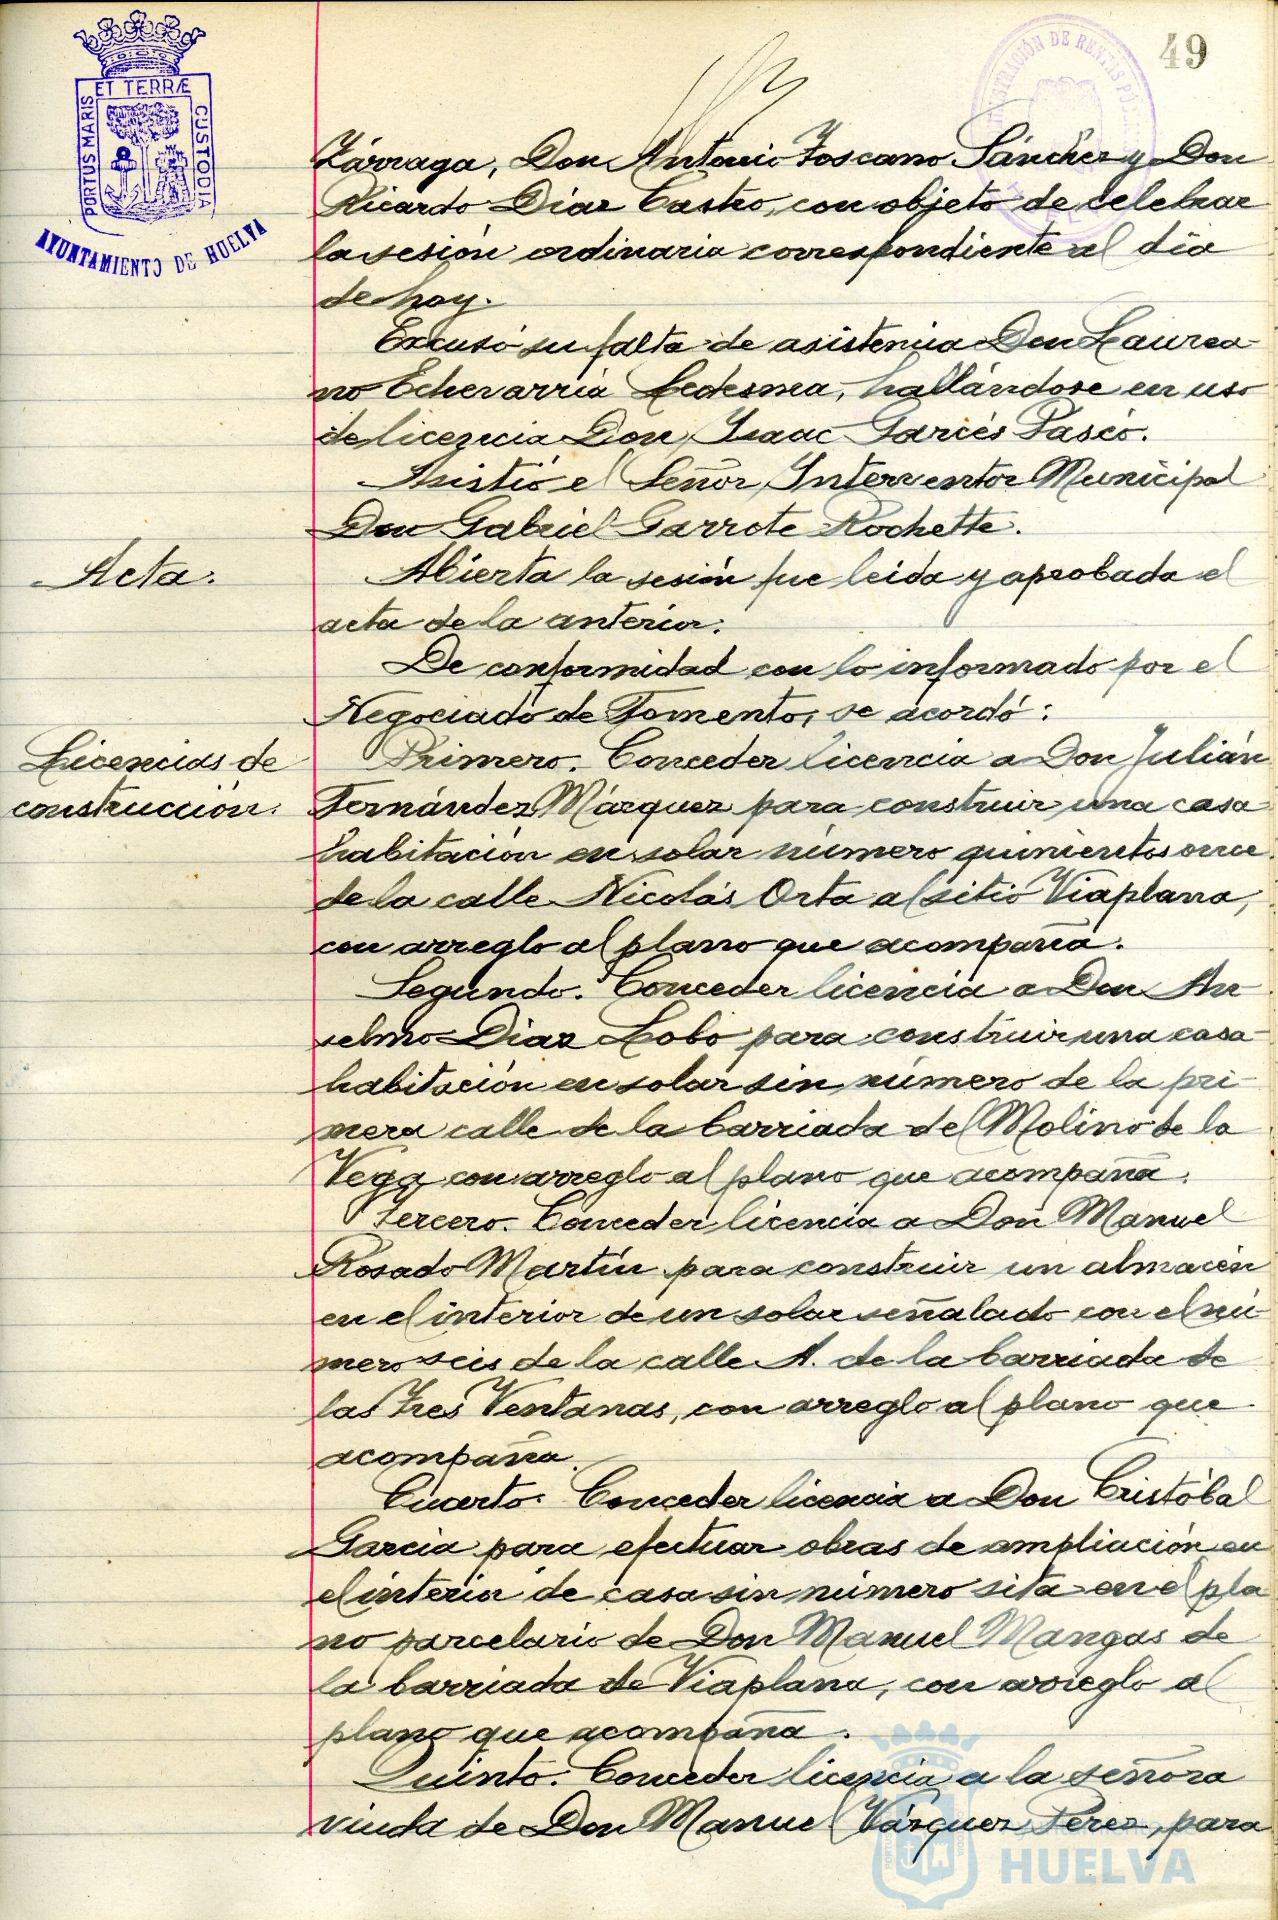 49
PORTUS MARIS ET TERRÆ CUSTODIA
AYUNTAMIENTO DE HUELVA
Zárraga, Don Antonio Toscano Sánchez y Don
Ricardo Díaz Castro, con objeto de celebrar
la sesión ordinaria correspondiente al día
de hoy.
Excusó su falta de asistencia Don Laurea-
no Echevarría Ledesma, hallándose en uso
de licencia Don Isaac Garcés Paseo.
Asistió el Señor Interventor Municipal
Don Gabriel Garrote Rochette.
Acta.
Abierta la sesión fue leida y aprobada el
acta de la anterior.
De conformidad con lo informado por el
Negociado de Fomento, se acordó:
Licencias de
construcción.
Primero. Conceder licencia a Don Julián
Fernández Márquez para construir una casa
habitación en solar número quinientos once
de la calle Nicolás Orta al sitio Viaplana,
con arreglo al plano que acompaña.
Segundo. Conceder licencia a Don An-
selmo Diaz Lobo para construir una casa
habitación en solar sin número de la pri-
mera calle de la barriada del Molino de la
Vega con arreglo al plano que acompaña.
Tercero. Conceder licencia a Don Manuel
Rosado Martín para construir un almacén
en el interior de un solar señalado con el nú-
mero seis de la calle A. de la barriada de
las Tres Ventanas, con arreglo al plano que
acompaña.
Cuarto. Conceder licencia a Don Cristóbal
García para efectuar obras de ampliación en
el interior de casa sin número sita en el pla
no parcelario de Don Manuel Mangas de
la barriada de Viaplana, con arreglo al
plano que acompaña.
Quinto. Conceder licencia a la señora
viuda de Don Manuel Vázquez Pérez, para
HUELVA